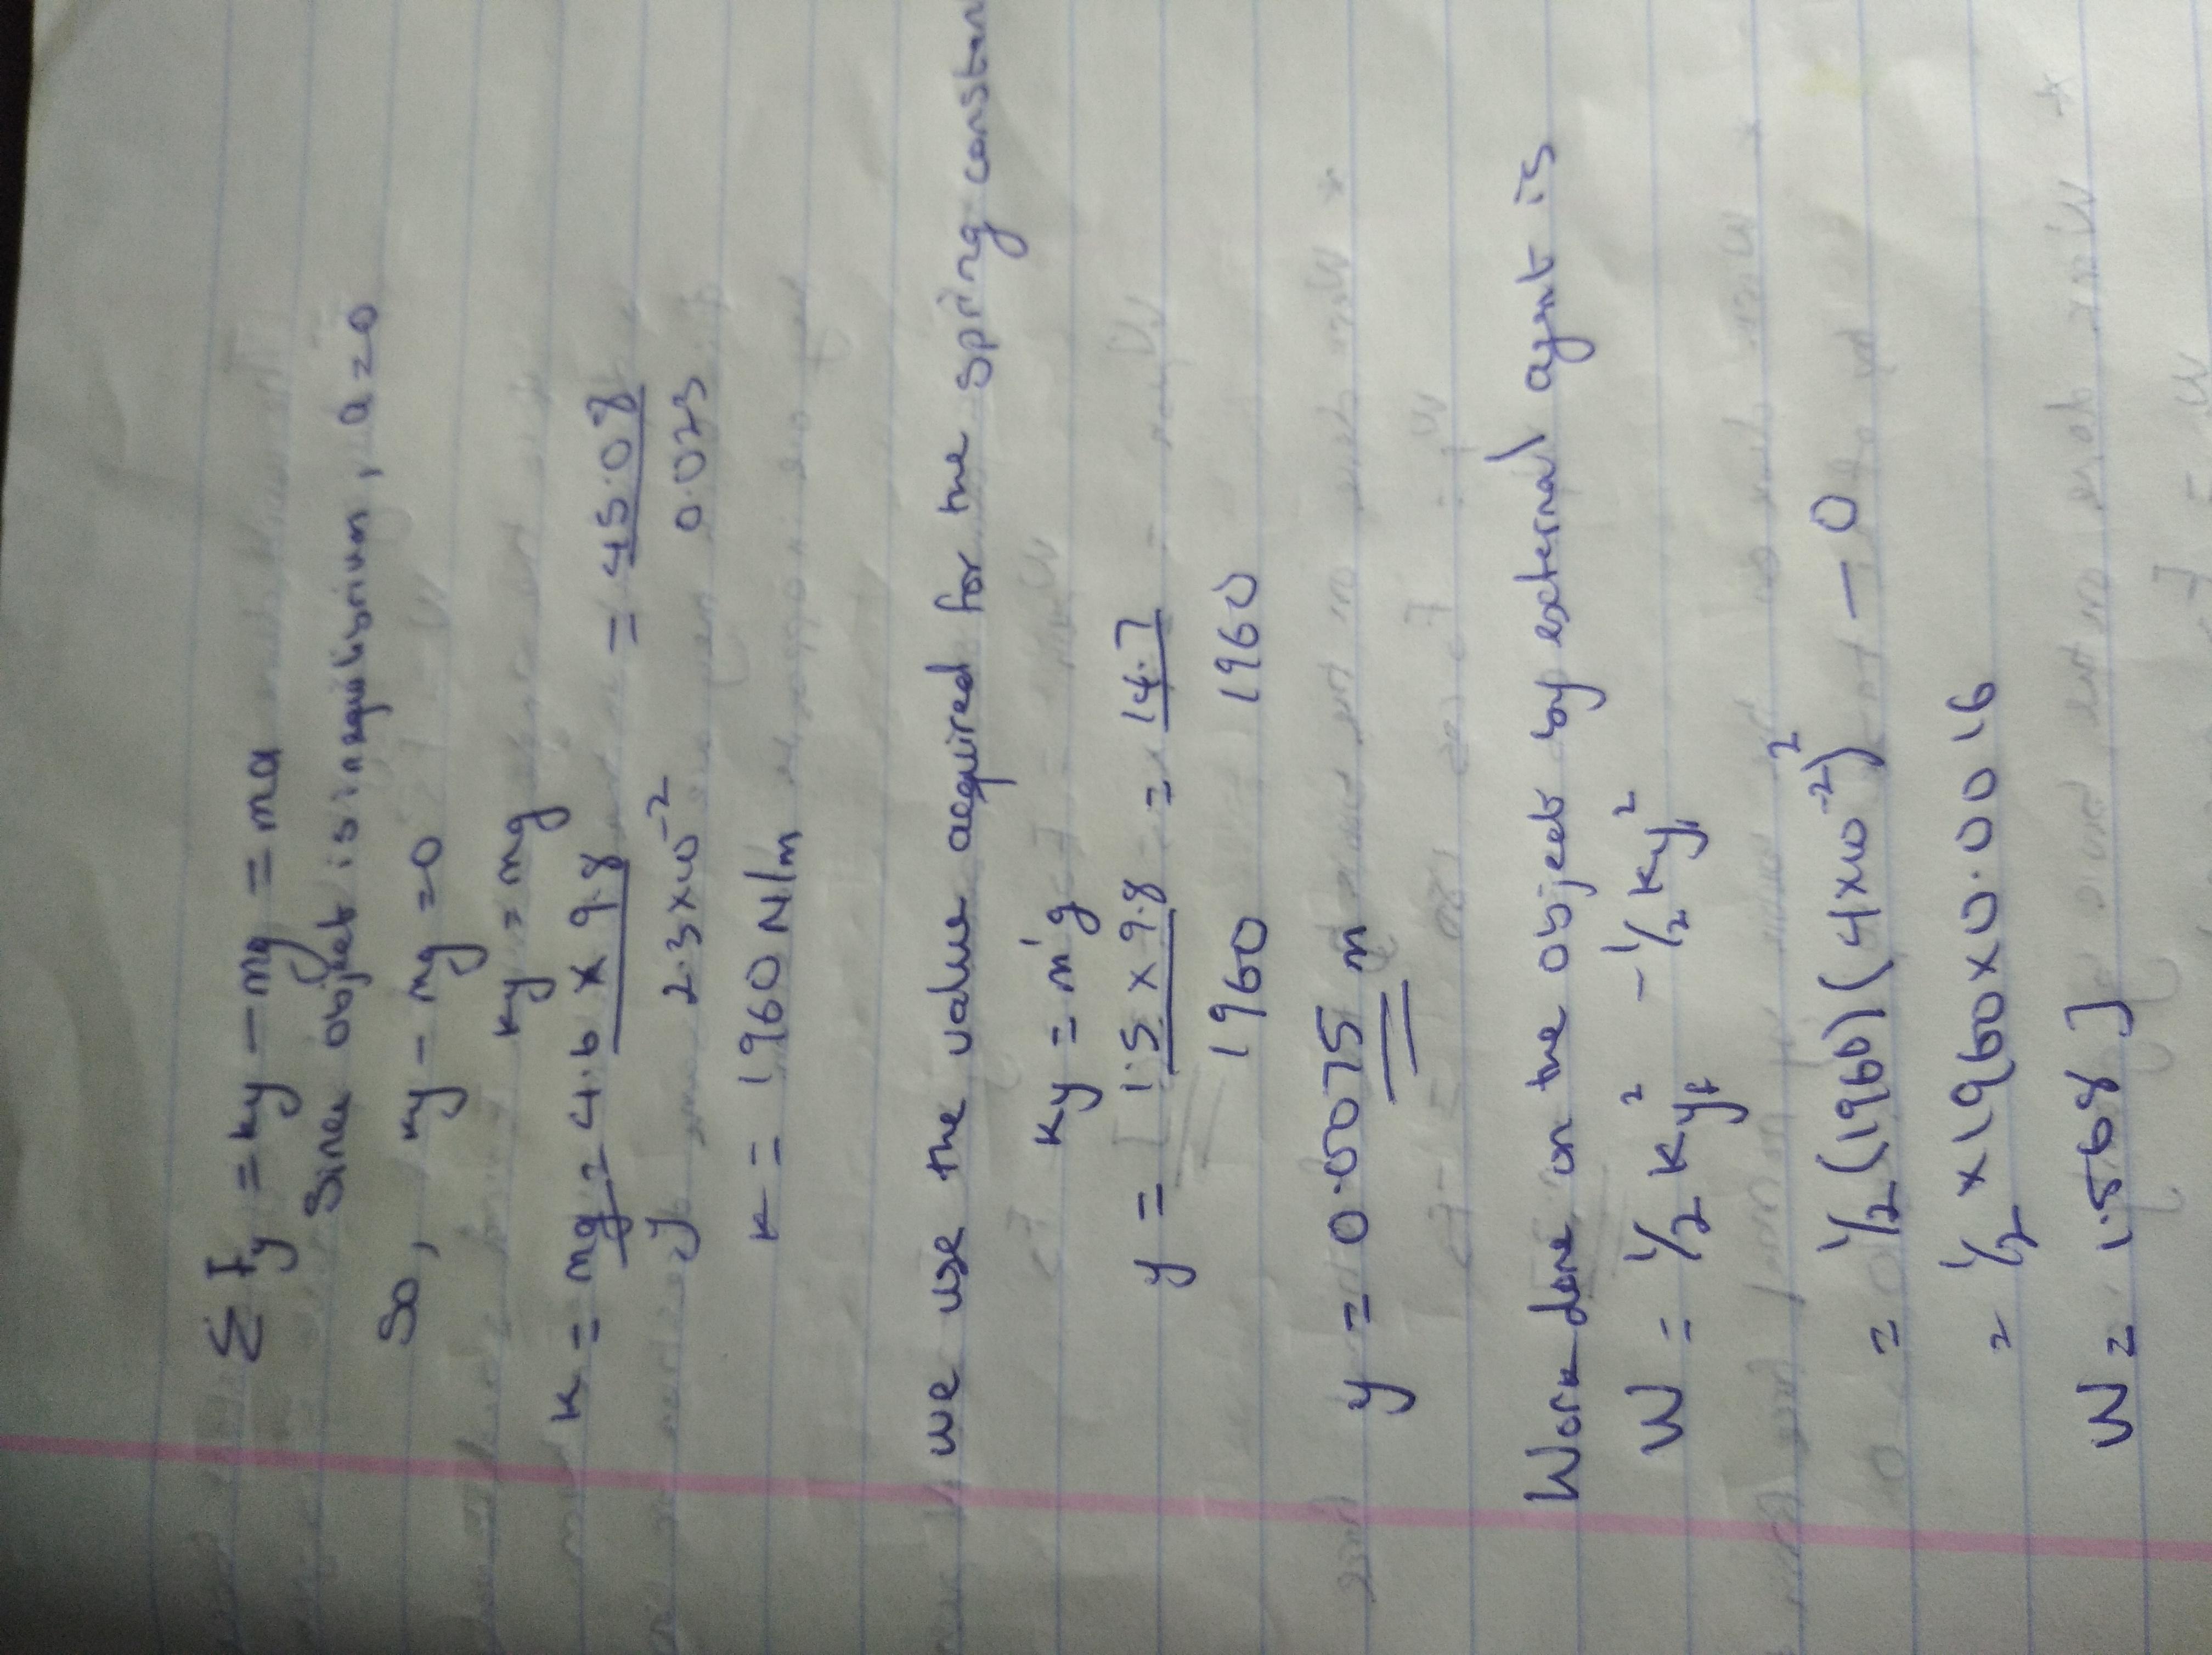 Σ Fy = ky - mg = ma
Since object is in equilibrium, a=0
So, ky - mg = 0
ky = mg
k = mg/y = 4.6 x 9.8 / 2.3x10⁻² = 45.08 / 0.023
k = 1960 N/m
we use the value acquired for the spring constan
ky = m'g
y = 1.5 x 9.8 / 1960 = 14.7 / 1960
y = 0.0075 m
Work done on the object by external agent is
W = ½ k yf² - ½ k yi²
= ½ (1960) (4x10⁻²)² - 0
= ½ x 1960 x 0.0016
W = 1.568 J